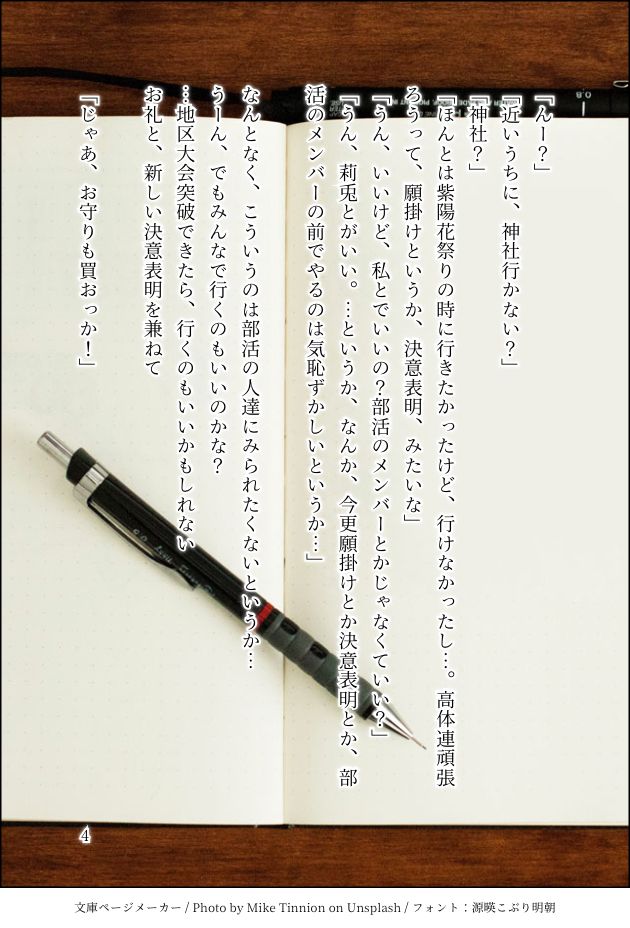 「んー？」
「近いうちに、神社行かない？」
「神社？」
「ほんとは紫陽花祭りの時に行きたかったけど、行けなかったし…。高体連頑張
ろうって、願掛けというか、決意表明、みたいな」
「うん、いいけど、私とでいいの？部活のメンバーとかじゃなくていい？」
「うん、莉兎とがいい。…というか、なんか、今更願掛けとか決意表明とか、部
活のメンバーの前でやるのは気恥ずかしいというか…」
なんとなく、こういうのは部活の人達にみられたくないというか…
うーん、でもみんなで行くのもいいのかな？
…地区大会突破できたら、行くのもいいかもしれない
お礼と、新しい決意表明を兼ねて
「じゃあ、お守りも買おっか！」
4
文庫ページメーカー / Photo by Mike Tinnion on Unsplash / フォント：源暎こぶり明朝